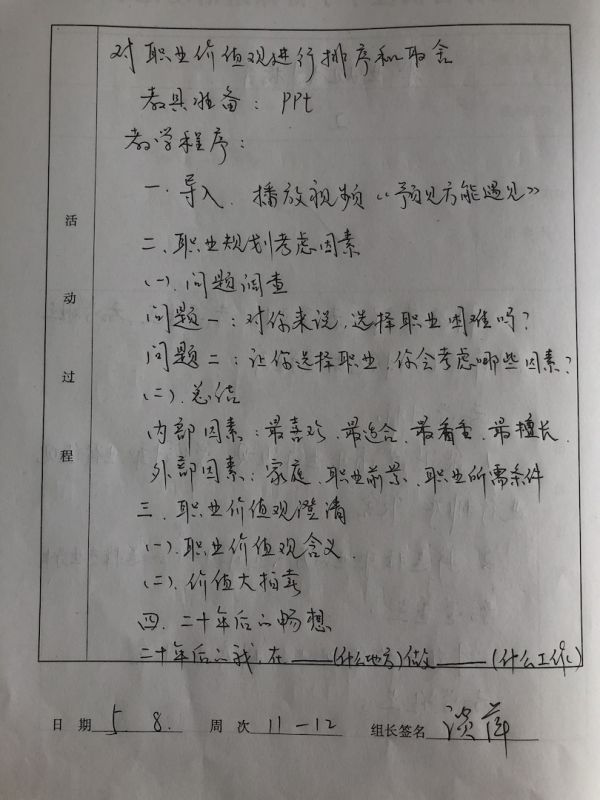 对职业价值观进行排序和取舍
教具准备：PPt
教学程序：
一．导入．播放视频《预见方能遇见》
二．职业规划考虑因素
（一）．问题调查
问题一：对你来说，选择职业困难吗？
问题二：让你选择职业，你会考虑哪些因素？
（二）．总结
内部因素：最喜欢、最适合、最看重、最擅长．
外部因素：家庭、职业前景、职业所需条件
三．职业价值观澄清
（一）．职业价值观含义．
（二）．价值大拍卖
四．二十年后的畅想
二十年后的我，在____（什么地方）做____（什么工作）
活动过程
日期 5.8. 周次 11-12 组长签名